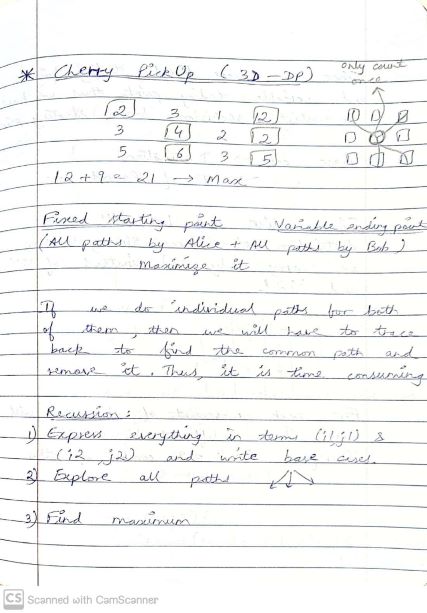 * Cherry Pick Up ( 3D - DP )
only count
once
2 3 1 2
3 4 2 2
5 6 3 5
12 + 9 = 21 → Max
Fixed starting point Variable ending point
(All paths by Alice + All paths by Bob)
Maximize it
If we do individual paths for both
of them, then we will have to trace
back to find the common path and
remove it. Thus, it is time consuming
Recursion :
1) Express everything in terms (i1, j1) &
(i2, j2) and write base cases.
2) Explore all paths
3) Find maximum
CS Scanned with CamScanner